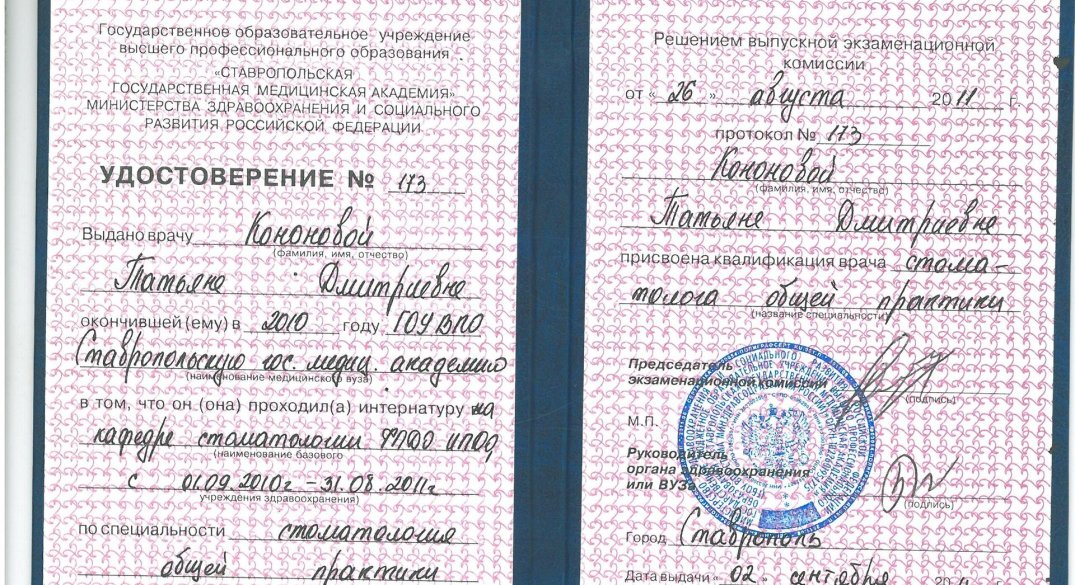 Государственное образовательное учреждение
высшего профессионального образования
«СТАВРОПОЛЬСКАЯ
ГОСУДАРСТВЕННАЯ МЕДИЦИНСКАЯ АКАДЕМИЯ»
МИНИСТЕРСТВА ЗДРАВООХРАНЕНИЯ И СОЦИАЛЬНОГО
РАЗВИТИЯ РОССИЙСКОЙ ФЕДЕРАЦИИ
УДОСТОВЕРЕНИЕ № 173
Выдано врачу Кононовой
(фамилия, имя, отчество)
Татьяне Дмитриевне
окончившей (ему) в 2010 году ГОУ ВПО
Ставропольскую гос. медиц. академию
(наименование медицинского вуза)
в том, что он (она) проходил(а) интернатуру на
кафедре стоматологии ФПДО
(наименование базового
с 01.09.2010г – 31.08.2011г
учреждения здравоохранения)
по специальности стоматология
общей практики
Решением выпускной экзаменационной
комиссии
от « 26 » августа 2011 г.
протокол № 173
Кононовой
(фамилия, имя, отчество)
Татьяне Дмитриевне
присвоена квалификация врача стома-
толога общей практики
(название специальности)
Председатель
экзаменационной комиссии
(подпись)
М.П.
Руководитель
органа здравоохранения
или ВУЗа
(подпись)
Город Ставрополь
Дата выдачи « 02 » сентября 20